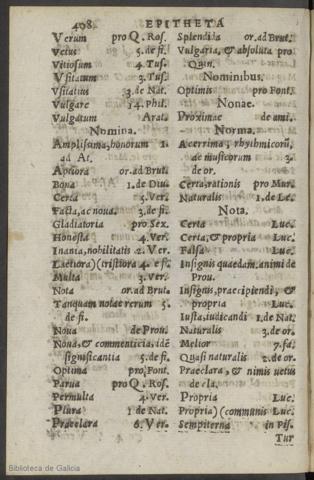 408. EPITHETA
Verum pro Q. Ros.
Vetus 5. de fi.
Vitiosum 4. Tus.
Vsitatum 3. Tus.
Vsitatius 3. de Nat.
Vulgare 14. Phil.
Vulgatum Arat.
Nomina.
Amplissima, honorum 1.
ad At.
Aptiora or. ad Brut.
Bona 1. de Diu.
Certa 5. Ver.
Facta, ac noua. 3. de fi.
Gladiatoria pro Sex.
Honesta 4. Ver.
Inania, nobilitatis 2. Ver.
Laetiora)(tristiora 4. e f.
Multa 3. Ver.
Nota or. ad Bru.
Tanquam notae rerum 5.
de fi.
Noua de Prou.
Noua, & commenticia, idē
significantia 5. de fi.
Optima pro Font.
Parua pro Q. Ros.
Permulta 4. Ver.
Plura 1. de Nat.
Praeclara 6. Ver.
Splendida or. ad Brut.
Vulgaria, & absoluta pro
Quin.
Nominibus.
Optimis pro Font.
Nonae.
Proximae de ami.
Norma.
Acerrima, rhythmicorū,
ac musicorum 3.
de or.
Certa, rationis pro Mur.
Naturalis 1. de Le.
Nota.
Certa Luc.
Certa, & propria Luc.
Falsa Luc.
Insignis quaedam animi de
Prou.
Insignis, praecipiendi, &
propria Luc.
Iusta, iudicandi 1. de Nat.
Naturalis 3. de or.
Melior 7. fa.
Quasi naturalis 2. de or.
Praeclara, & nimis uetus
de cla.
Propria Luc.
Propria)(communis Luc.
Sempiterna in Pis.
Tur
Biblioteca de Galicia